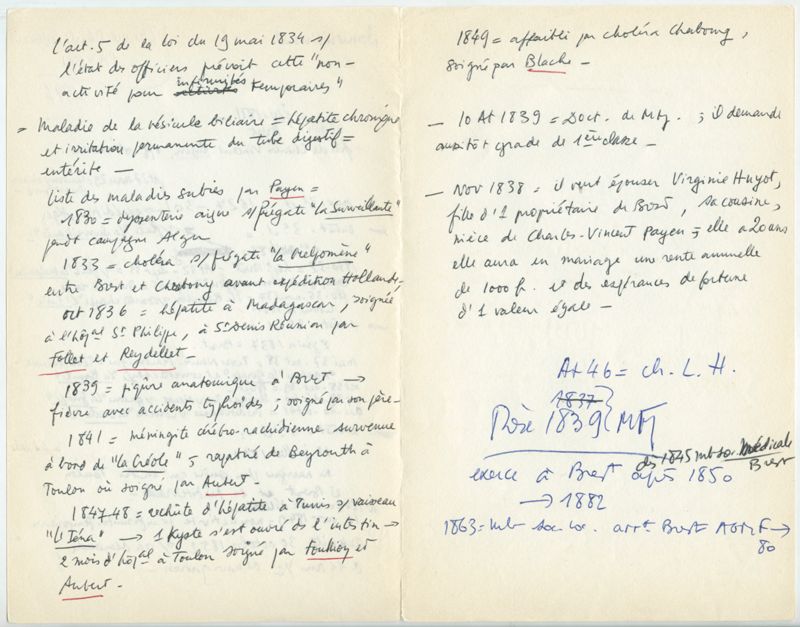 l'art. 5 de la loi du 19 mai 1834 s/
l'état des officiers prévoit cette "non-
activité pour infirmités temporaires"
= Maladie de la vésicule biliaire = hépatite chronique
et irritation permanente du tube digestif =
entérite —
liste des maladies subies par Payen =
1830 = dysenterie aigue s/ frégate "la Surveillante"
pendt campagne Alger
1833 = choléra s/ frégate "la Melpomène"
entre Brest et Cherbourg avant expédition Hollande.
oct 1836 = hépatite à Madagascar, soignée
à l'hôpal St Philippe, à St Denis Réunion par
Follet et Reydellet —
1839 = piqûre anatomique à Brest →
fièvre avec accidents typhoïdes ; soigné par son père —
1841 = méningite cérébro-rachidienne survenue
à bord de "la Créole" ; rapatrié de Beyrouth à
Toulon où soigné par Aubert —
1847-48 = rechute d'hépatite à Tunis s/ vaisseau
"Iéna" → 1 kyste s'est ouvert ds l'intestin →
2 mois d'hôpal à Toulon soigné par et
Aubert —
1849 = affaibli par choléra Cherbourg,
soigné par Blache —
— 10 At 1839 = Doct. de Mtp. ; il demande
aussitôt grade de 1ère classe —
— Nov 1838 = il veut épouser Virginie Huyot,
fille d'1 propriétaire de Brest, sa cousine,
nièce de Charles-Vincent Payen ; elle a 20 ans
elle aura en mariage une rente annuelle
de 1000 fr. et des espérances de fortune
d'1 valeur égale —
At 46 = ch. L. H.
1837
Thèse 1839 Mtp
dès 1845 mb soc. médicale
Brest
exerce à Brest après 1850
→ 1882
1863 = mb soc. loc. arrt Brest AGMF →
80